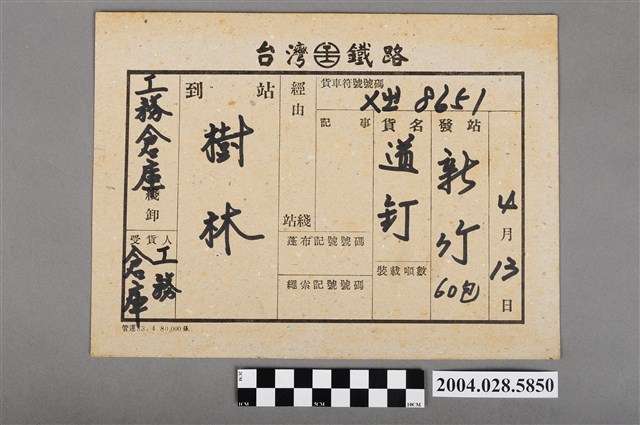 台灣鐵路
貨車符號號碼
8651
4月13日
發站
新竹
60包
貨名
道釘
裝載噸數
記事
經由
綫站
蓬布記號號碼
繩索記號號碼
到站
樹林
工務倉庫
綫卸
受貨人
工務
倉庫
管運 3.4.80,000張
1CM
2CM
5CM
10CM
2004.028.5850